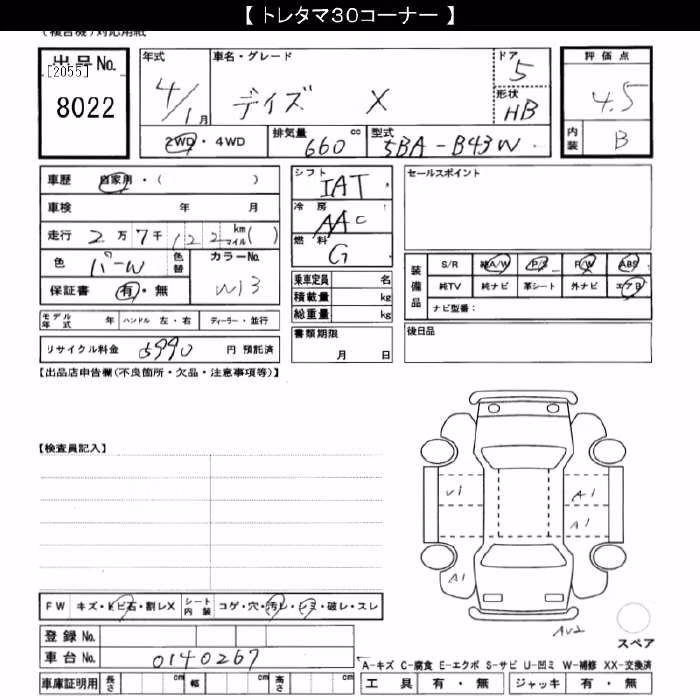 【 トレタマ30コーナー 】
(複合機)対応用紙
出品No.
[2055]
8022
年式
4/1月
車名・グレード
デイズ X
ドア
5
形状
HB
評価点
4.5
内装
B
2WD・4WD
排気量
660 cc
型式
5BA-B43W
車歴 自家用・( )
車検 年 月
走行 2万7千122 km マイル( )
色 パールW 色替
カラーNo.
W13
保証書 有・無
モデル年式 年 ハンドル 左・右 ディーラー・並行
リサイクル料金 5990 円 預託済
シフト
IAT
冷房
AAC
燃料
G
乗車定員 名
積載量 kg
総重量 kg
書類期限
月 日
セールスポイント
装備品
S/R 純A/W P/S P/W ABS
純TV 純ナビ 革シート 外ナビ エアB
ナビ型番:
後日品
【出品店申告欄(不良箇所・欠品・注意事項等)】
【検査員記入】
U1
A1
A1
A1
AU2
スペア
FW キズ・トビ石・割レX
シート内装 コゲ・穴・汚レ・シミ・破レ・スレ
登録No.
車台No. 0140267
車庫証明用 長さ cm 幅 cm 高さ cm
A-キズ C-腐食 E-エクボ S-サビ U-凹ミ W-補修 XX-交換済
工具 有・無 ジャッキ 有・無